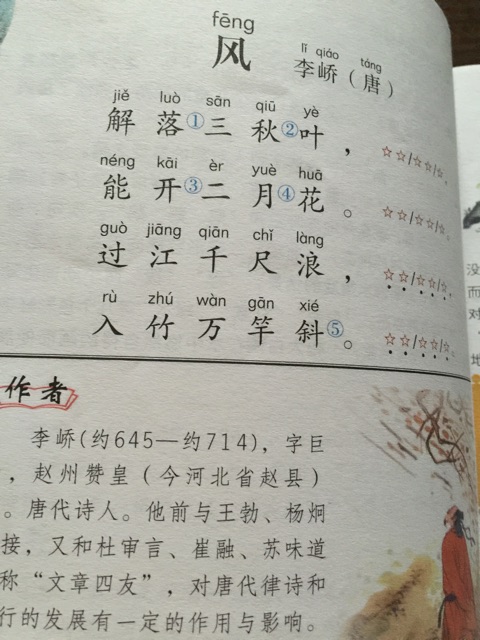 fēng
风
lǐ qiáo táng
李峤（唐）
jiě luò sān qiū yè
解落①三秋②叶，☆☆/☆☆/☆，
néng kāi èr yuè huā
能开③二月④花。☆☆/☆☆/☆。
guò jiāng qiān chǐ làng
过江千尺浪，☆☆/☆☆/☆，
rù zhú wàn gān xié
入竹万竿斜⑤。☆☆/☆☆/☆。
作者
李峤(约645—约714)，字巨
，赵州赞皇（今河北省赵县）
。唐代诗人。他前与王勃、杨炯
接，又和杜审言、崔融、苏味道
称“文章四友”，对唐代律诗和
行的发展有一定的作用与影响。
没
而
对